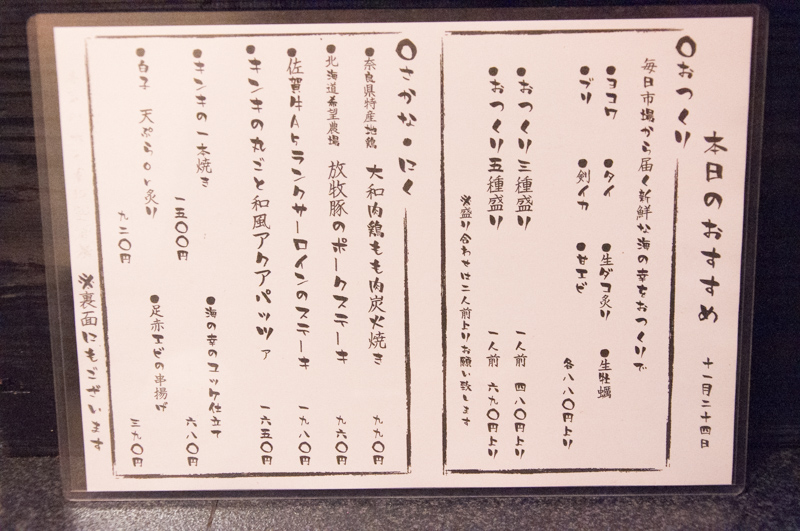 本日のおすすめ 十一月二十四日
○おつくり
毎日市場から届く新鮮な海の幸をおつくりで
●ヨコワ ●タイ ●生ダコ炙り ●生牡蠣
●ブリ ●剣イカ ●甘エビ 各八八〇円より
●おつくり三種盛り 一人前 四八〇円より
●おつくり五種盛り 一人前 六九〇円より
※盛り合わせは二人前よりお願い致します
○さかな・にく
●奈良県特産地鶏 大和肉鶏もも肉炭火焼き 九九〇円
●北海道希望農場 放牧豚のポークステーキ 九六〇円
●佐賀牛A5ランクサーロインのステーキ 一九八〇円
●キンキの丸ごと和風アクアパッツァ 一六五〇円
●キンキの一本焼き 一五〇〇円
●海の幸のコッケ仕立て 六八〇円
●白子 天ぷらor炙り 九二〇円
●足赤エビの串揚げ 三九〇円
※裏面にもございます